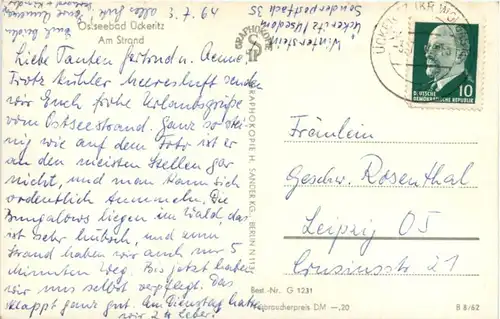 Ostseebad Ückeritz
Am Strand
3. 7. 64
Liebe Tanten Gertrud u. Aenne
Trotz kühler Meeresluft senden
wir Euch frohe Urlaubsgrüße
vom Ostseestrand. Ganz so stei-
nig wie auf dem Foto ist er
an den meisten Stellen gar
nicht, und man kann sich
ordentlich tummeln. Die
Bungalows liegen im Wald, das
ist sehr hübsch, und zum
Strand haben wir auch nur 5
Minuten Weg. Bis jetzt haben
wir uns selbst verpflegt. Das
klappt ganz gut. Am Dienstag hatte
wir 24 Leber!
GRAPHOKOPIE
GRAPHOKOPIE H. SANDER KG. BERLIN N 113
Winterstein
Ückeritz/Usedom
Sonderpostfach 35
10
DEUTSCHE
DEMOKRATISCHE REPUBLIK
Fräulein
Geschw. Rosenthal
Leipzig O5
Crusiusstr 21
Best.-Nr. G 1231
Verbraucherpreis DM —,20
B 8/62